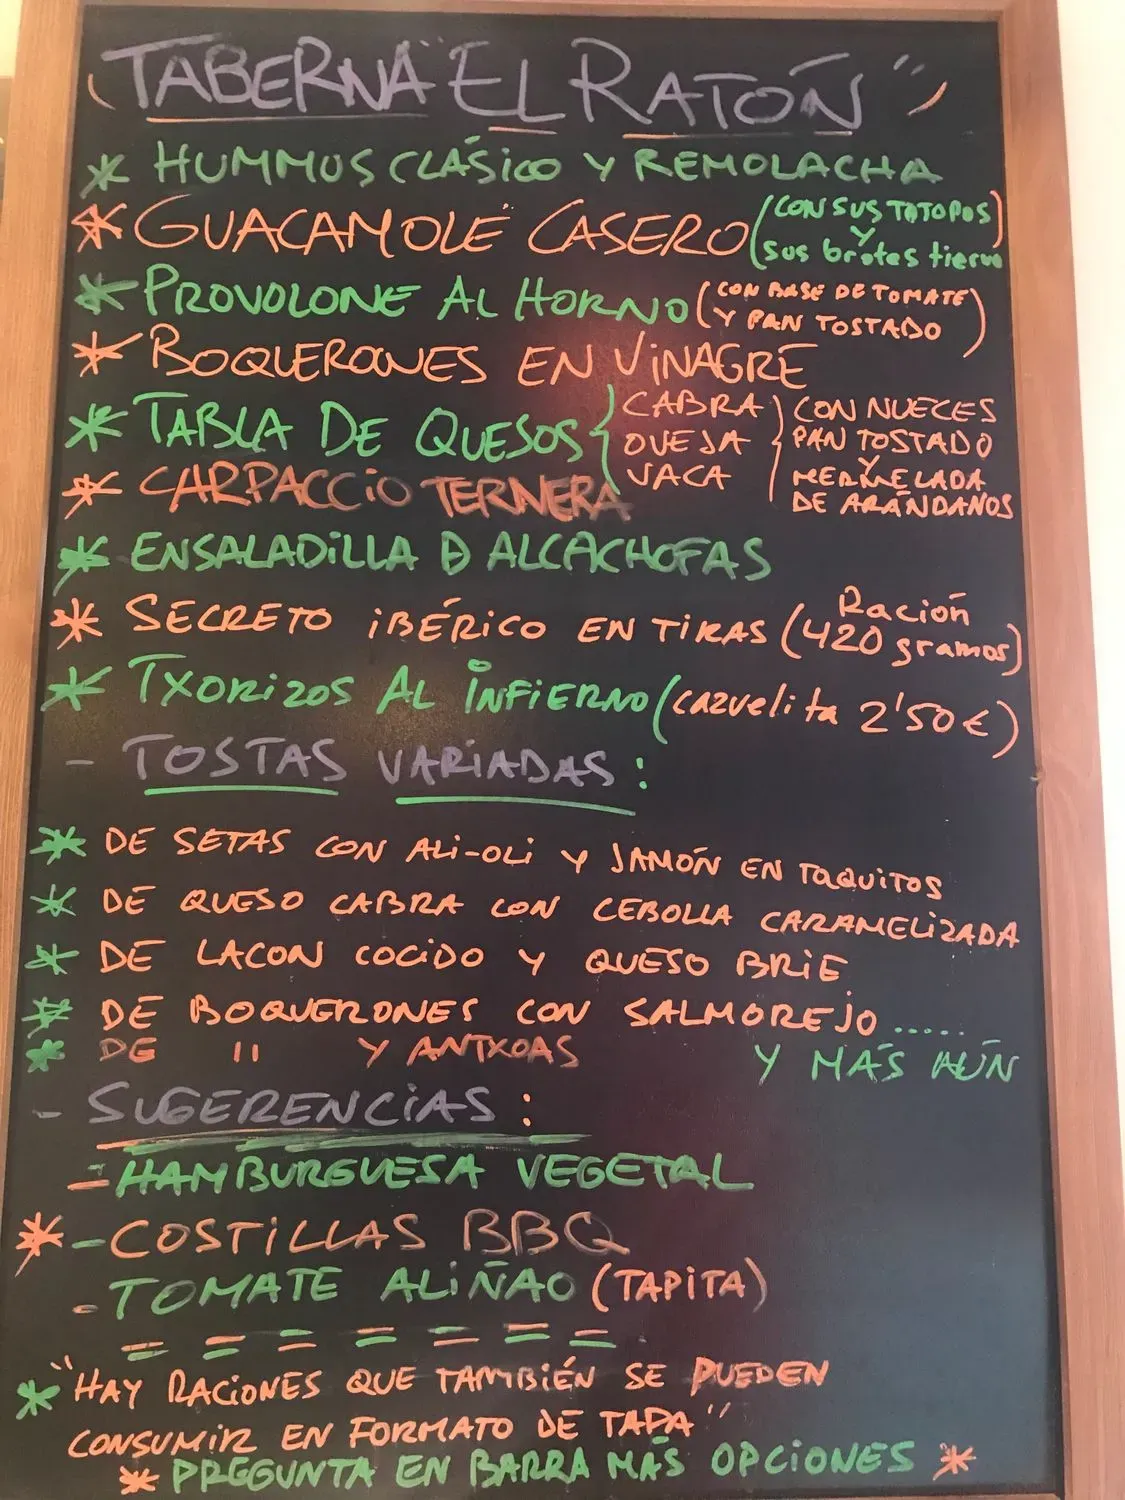 TABERNA "EL RATÓN"
* HUMMUS CLÁSICO Y REMOLACHA
* GUACAMOLE CASERO (CON SUS TOTOPOS)
Y
(sus brotes tierno
* PROVOLONE AL HORNO (CON BASE DE TOMATE
Y PAN TOSTADO)
* BOQUERONES EN VINAGRE
* TABLA DE QUESOS { CABRA } CON NUECES
OVEJA PAN TOSTADO
Y
VACA MERMELADA
DE ARÁNDANOS
* CARPACCIO TERNERA
* ENSALADILLA D ALCACHOFAS
* SECRETO IBÉRICO EN TIRAS (Ración
420 gramos)
* TXORIZOS AL INFIERNO (cazuelita 2'50€)
- TOSTAS VARIADAS:
* DE SETAS CON ALI-OLI Y JAMÓN EN TAQUITOS
* DE QUESO CABRA CON CEBOLLA CARAMELIZADA
* DE LACON COCIDO Y QUESO BRIE
* DE BOQUERONES CON SALMOREJO.....
* DE " Y ANTXOAS Y MÁS AÚN
- SUGERENCIAS:
- HAMBURGUESA VEGETAL
* - COSTILLAS BBQ
- TOMATE ALIÑAO (TAPITA)
= = = = = = =
* "HAY RACIONES QUE TAMBIÉN SE PUEDEN
CONSUMIR EN FORMATO DE TAPA"
* PREGUNTA EN BARRA MÁS OPCIONES *